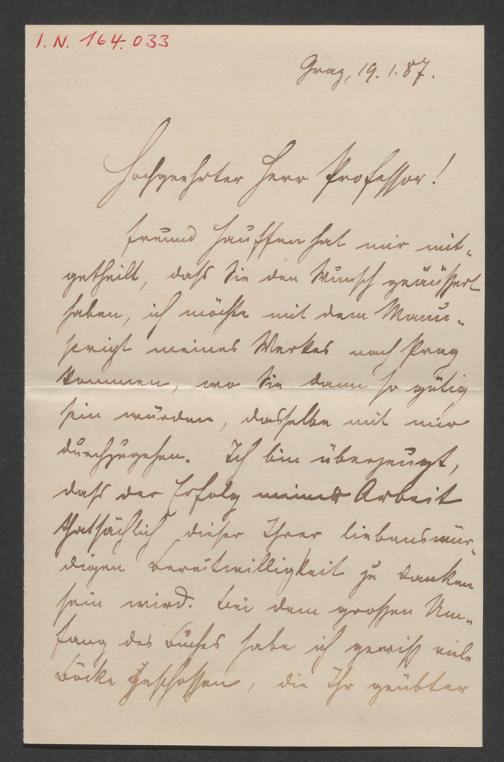 I.N. 164.033
Graz, 19.1.87.
Hochgeehrter Herr Professor!
Freund Hauffen hat mir mit-
getheilt, daß Sie den Wunsch geäußert
haben, ich möchte mit dem Manu-
script meines Werkes nach Prag
kommen, wo Sie dann so gütig
sein würden, dasselbe mit mir
durchzugehen. Ich bin überzeugt,
daß der Erfolg meiner Arbeit
thatsächlich dieser Ihrer liebenswür-
digen Bereitwilligkeit zu danken
sein wird. Bei dem großen Um-
fang des Buches habe ich gewiß viele
Böcke geschossen, die Ihr geübter